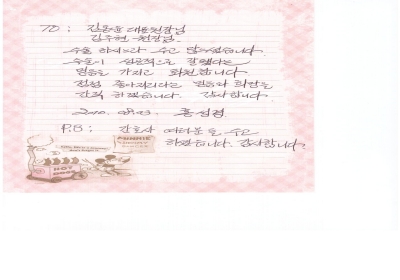 TO: 김용훈 대표원장님
김주현 원장님.
수술 하시느라 수고 많으셨습니다.
수술이 성공적으로 잘됐다는
믿음을 가지고 퇴원합니다
점점 좋아지리라는 믿음과 희망을
간직 하겠습니다. 감사합니다.
2010. 08.03.
P.S : 간호사 여러분들 수고
하셨습니다. 감사합니다.
MINNIE
HOT DOG